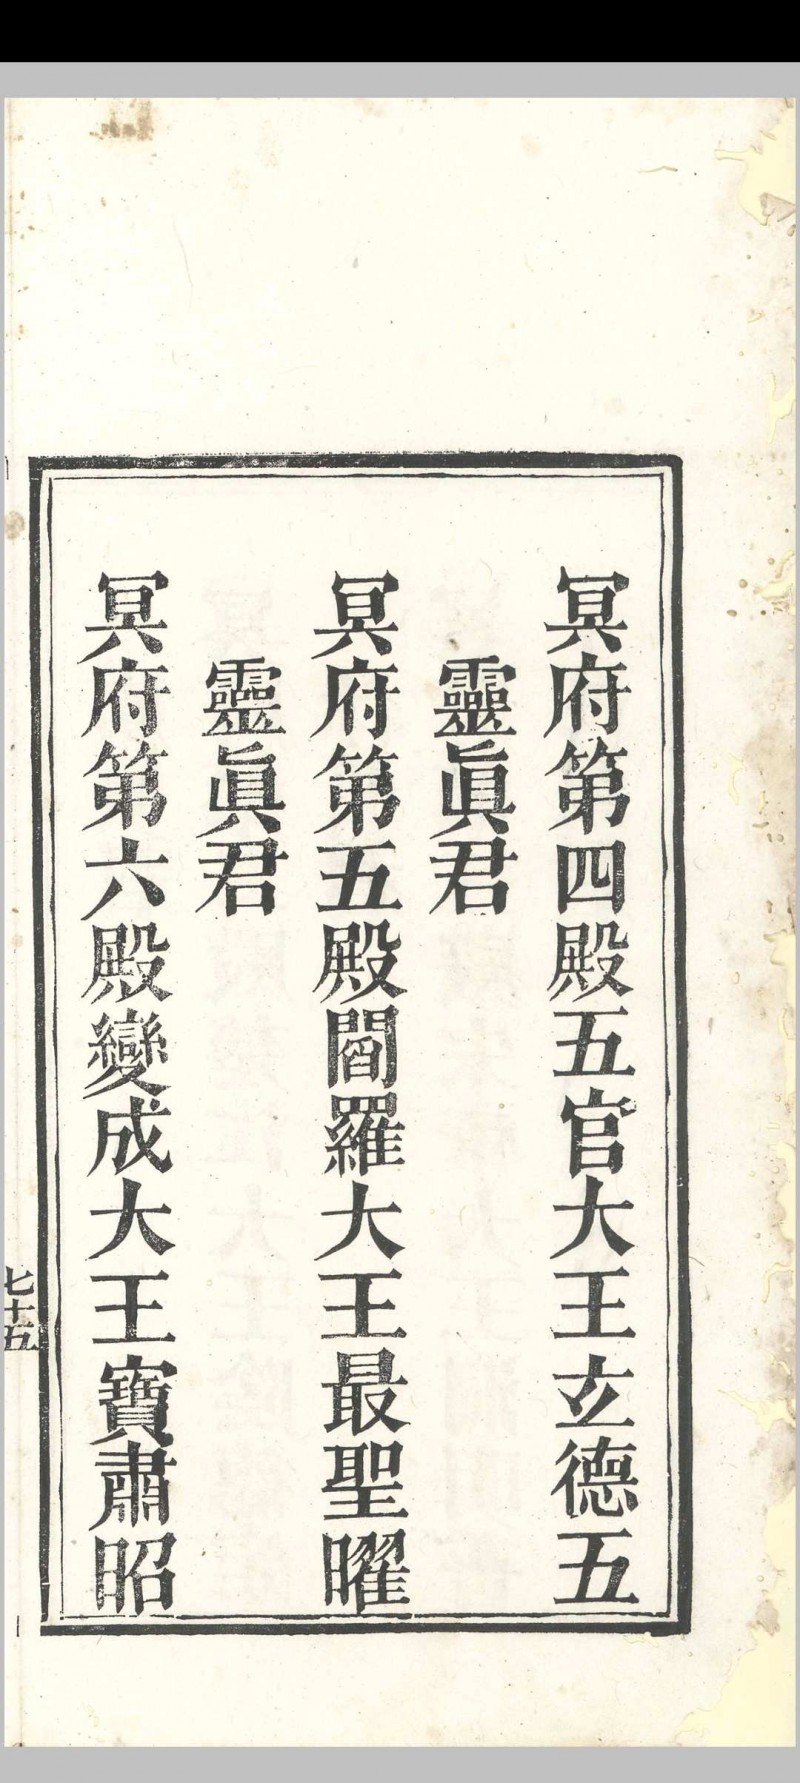 冥府第四殿五官大王立德五
靈眞君
冥府第五殿閻羅大王最聖曜
靈眞君
冥府第六殿變成大王寶肅昭
七十五